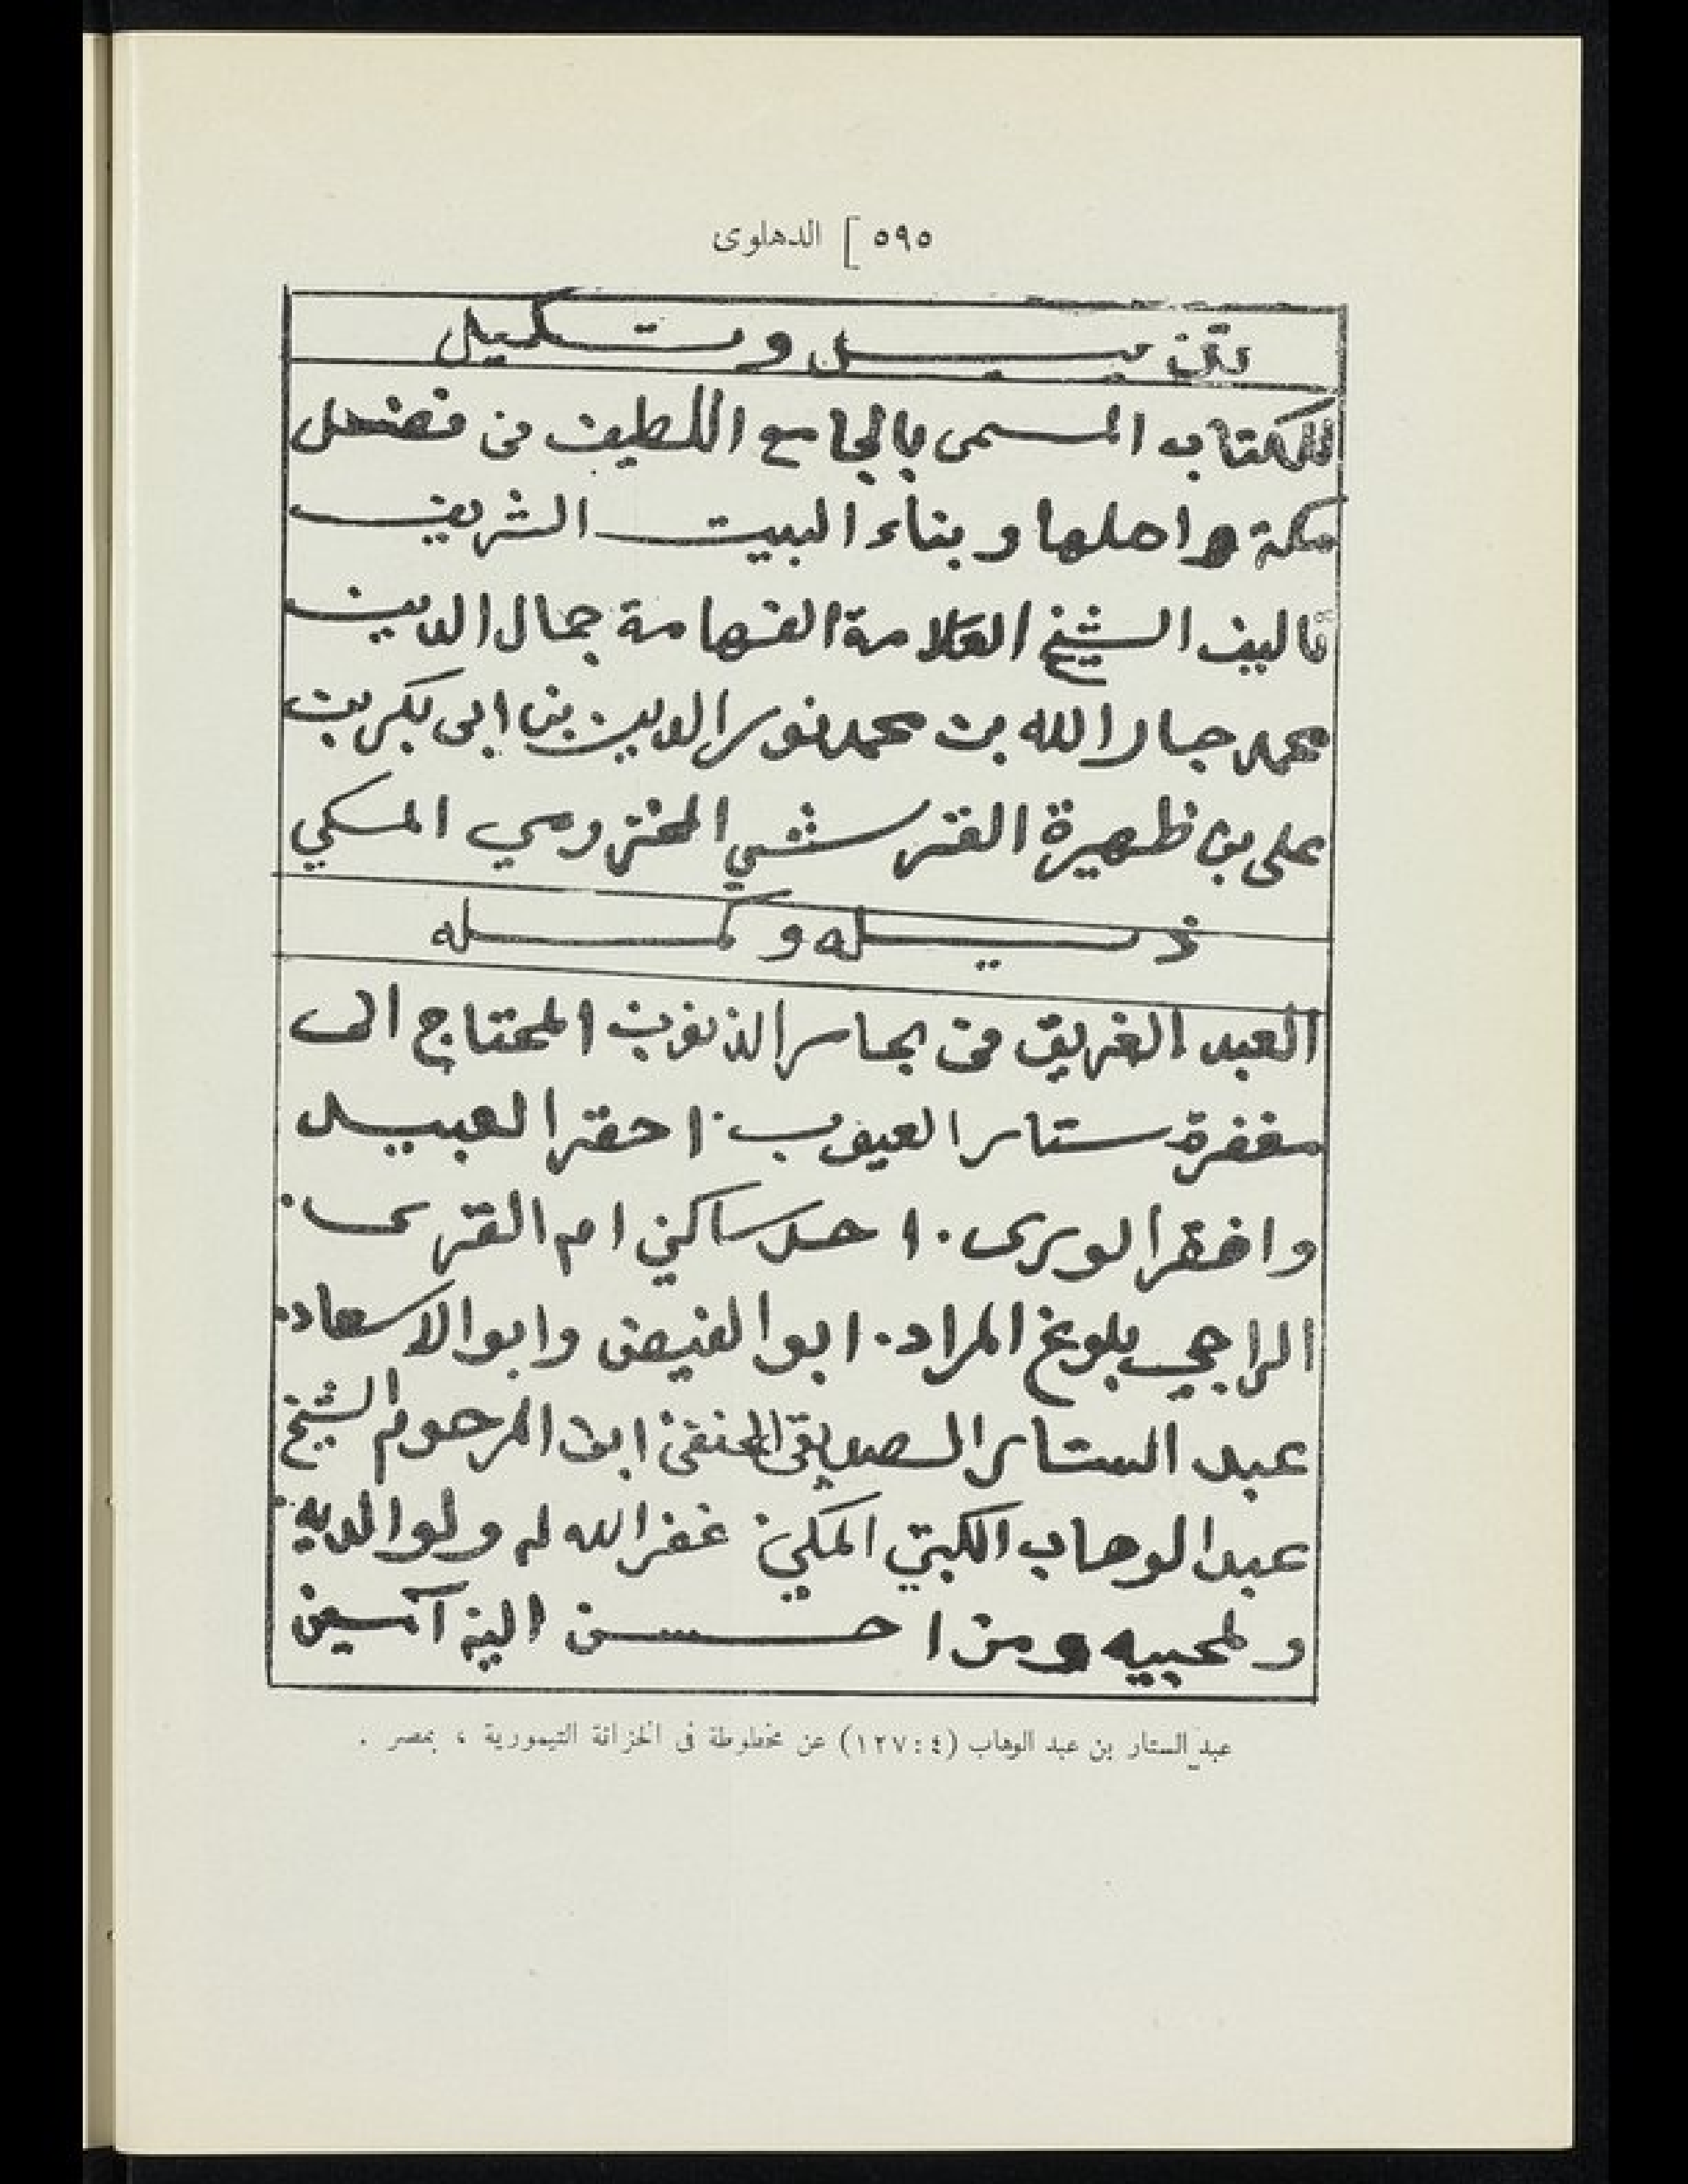 ٥٩٥ ] الدهلوى
تذييل وتكميل
للكتاب المسمى بالجامع اللطيف فى فضل
مكة واهلها وبناء البيت الشريف
تاليف الشيخ العلامة الفهامة جمال الدين
محمد جار الله بن محمد نور الدين بن ابى بكر بن
على بن ظهيرة القرشي المخزومي المكي
ذيله وكمله
العبد الغريق فى بحار الذنوب المحتاج الى
مغفرة ستار العيوب . احقر العبيد
وافقر الورى . احد ساكني ام القرى .
الراجي بلوغ المراد . ابو الفيض وابو الاسعاد .
عبد الستار الصديقى الحنفى ابن المرحوم الشيخ
عبد الوهاب الكتبي المكي غفر الله له ولوالديه
ولمحبيه ومن احسن اليه آمين
عبد الستار بن عبد الوهاب (٤ : ١٢٧) عن مخطوطة فى الخزانة التيمورية ، بمصر .